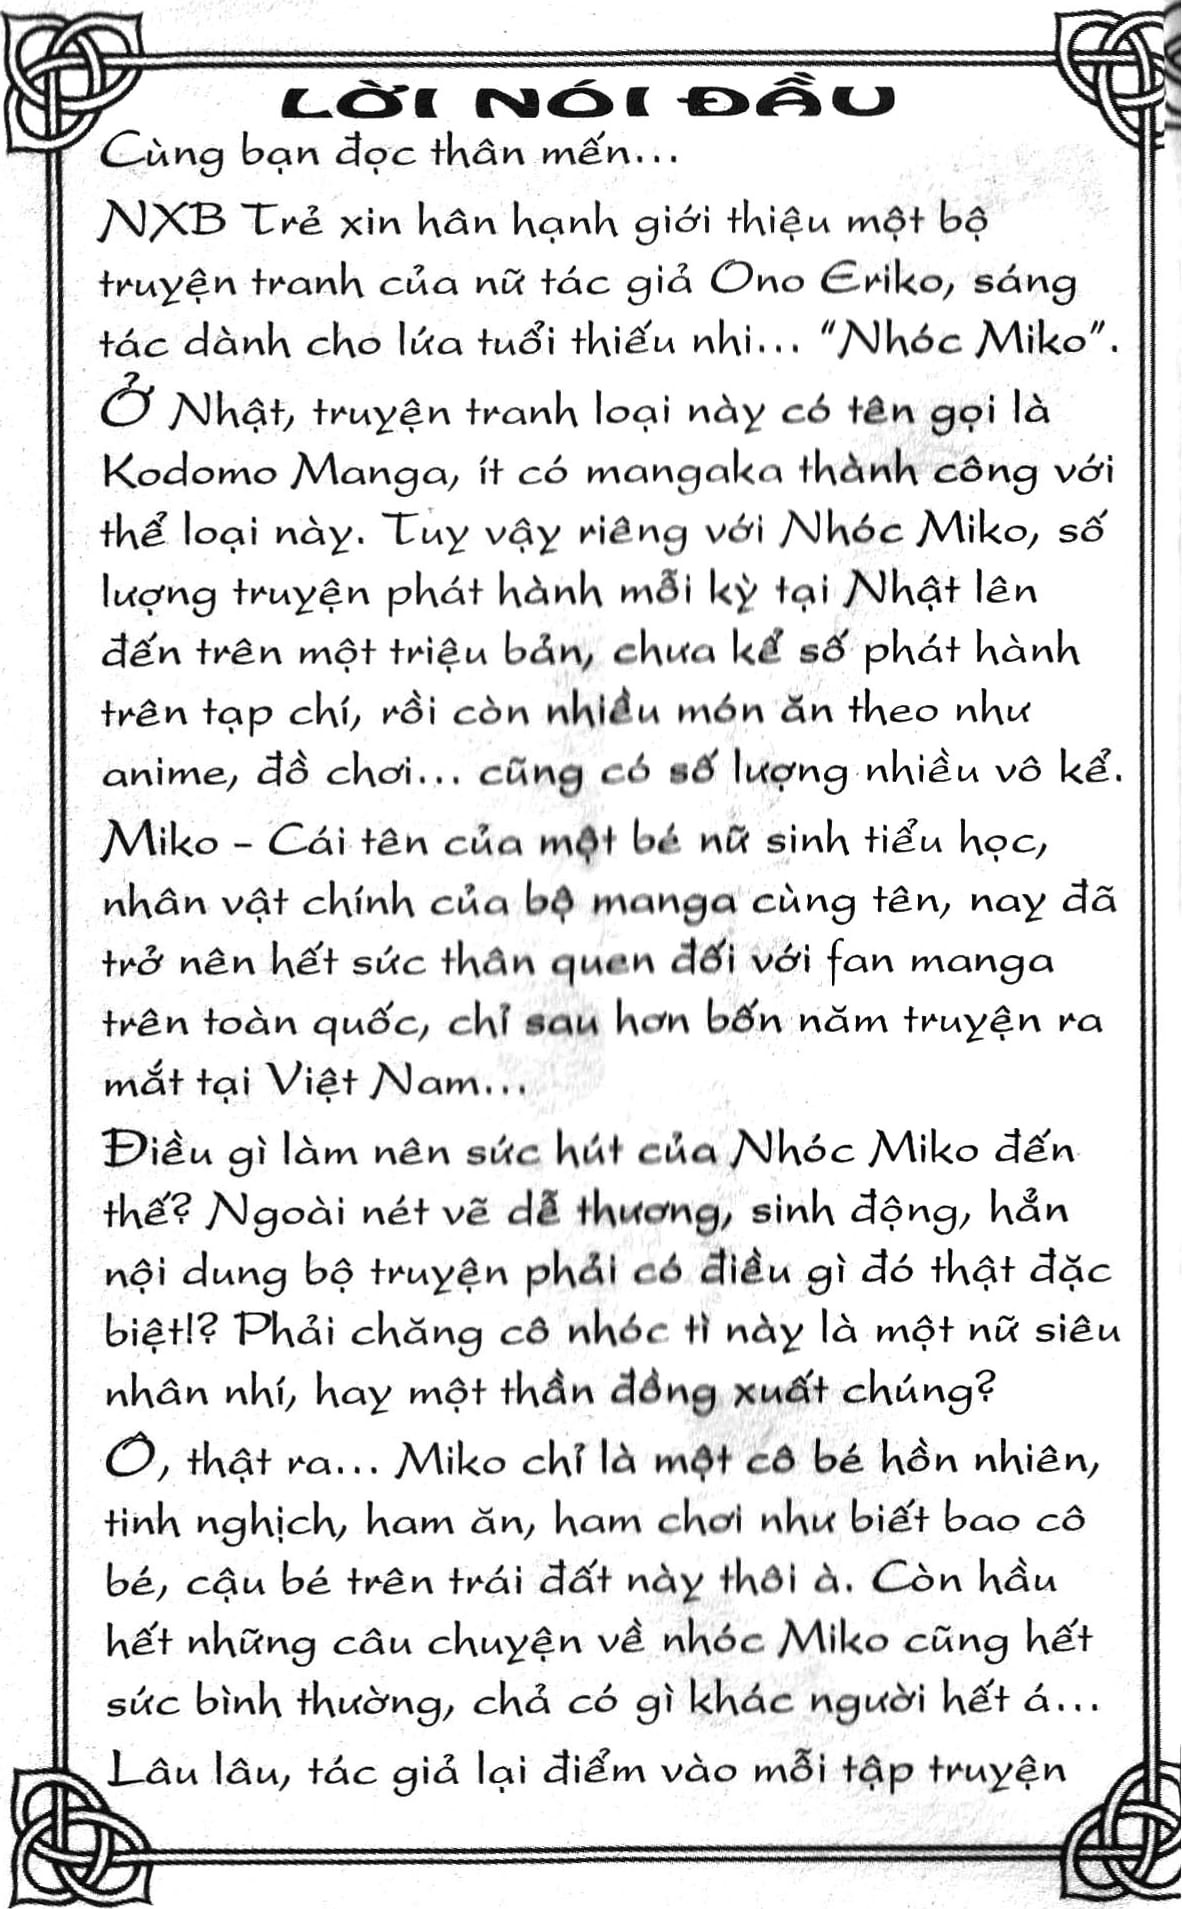 LỜI NÓI ĐẦU
Cùng bạn đọc thân mến...
NXB Trẻ xin hân hạnh giới thiệu một bộ
truyện tranh của nữ tác giả Ono Eriko, sáng
tác dành cho lứa tuổi thiếu nhi... "Nhóc Miko".
Ở Nhật, truyện tranh loại này có tên gọi là
Kodomo Manga, ít có mangaka thành công với
thể loại này. Tuy vậy riêng với Nhóc Miko, số
lượng truyện phát hành mỗi kỳ tại Nhật lên
đến trên một triệu bản, chưa kể số phát hành
trên tạp chí, rồi còn nhiều món ăn theo như
anime, đồ chơi... cũng có số lượng nhiều vô kể.
Miko - Cái tên của một bé nữ sinh tiểu học,
nhân vật chính của bộ manga cùng tên, nay đã
trở nên hết sức thân quen đối với fan manga
trên toàn quốc, chỉ sau hơn bốn năm truyện ra
mắt tại Việt Nam...
Điều gì làm nên sức hút của Nhóc Miko đến
thế? Ngoài nét vẽ dễ thương, sinh động, hẳn
nội dung bộ truyện phải có điều gì đó thật đặc
biệt!? Phải chăng cô nhóc tì này là một nữ siêu
nhân nhí, hay một thần đồng xuất chúng?
Ô, thật ra... Miko chỉ là một cô bé hồn nhiên,
tinh nghịch, ham ăn, ham chơi như biết bao cô
bé, cậu bé trên trái đất này thôi à. Còn hầu
hết những câu chuyện về nhóc Miko cũng hết
sức bình thường, chả có gì khác người hết á...
Lâu lâu, tác giả lại điểm vào mỗi tập truyện